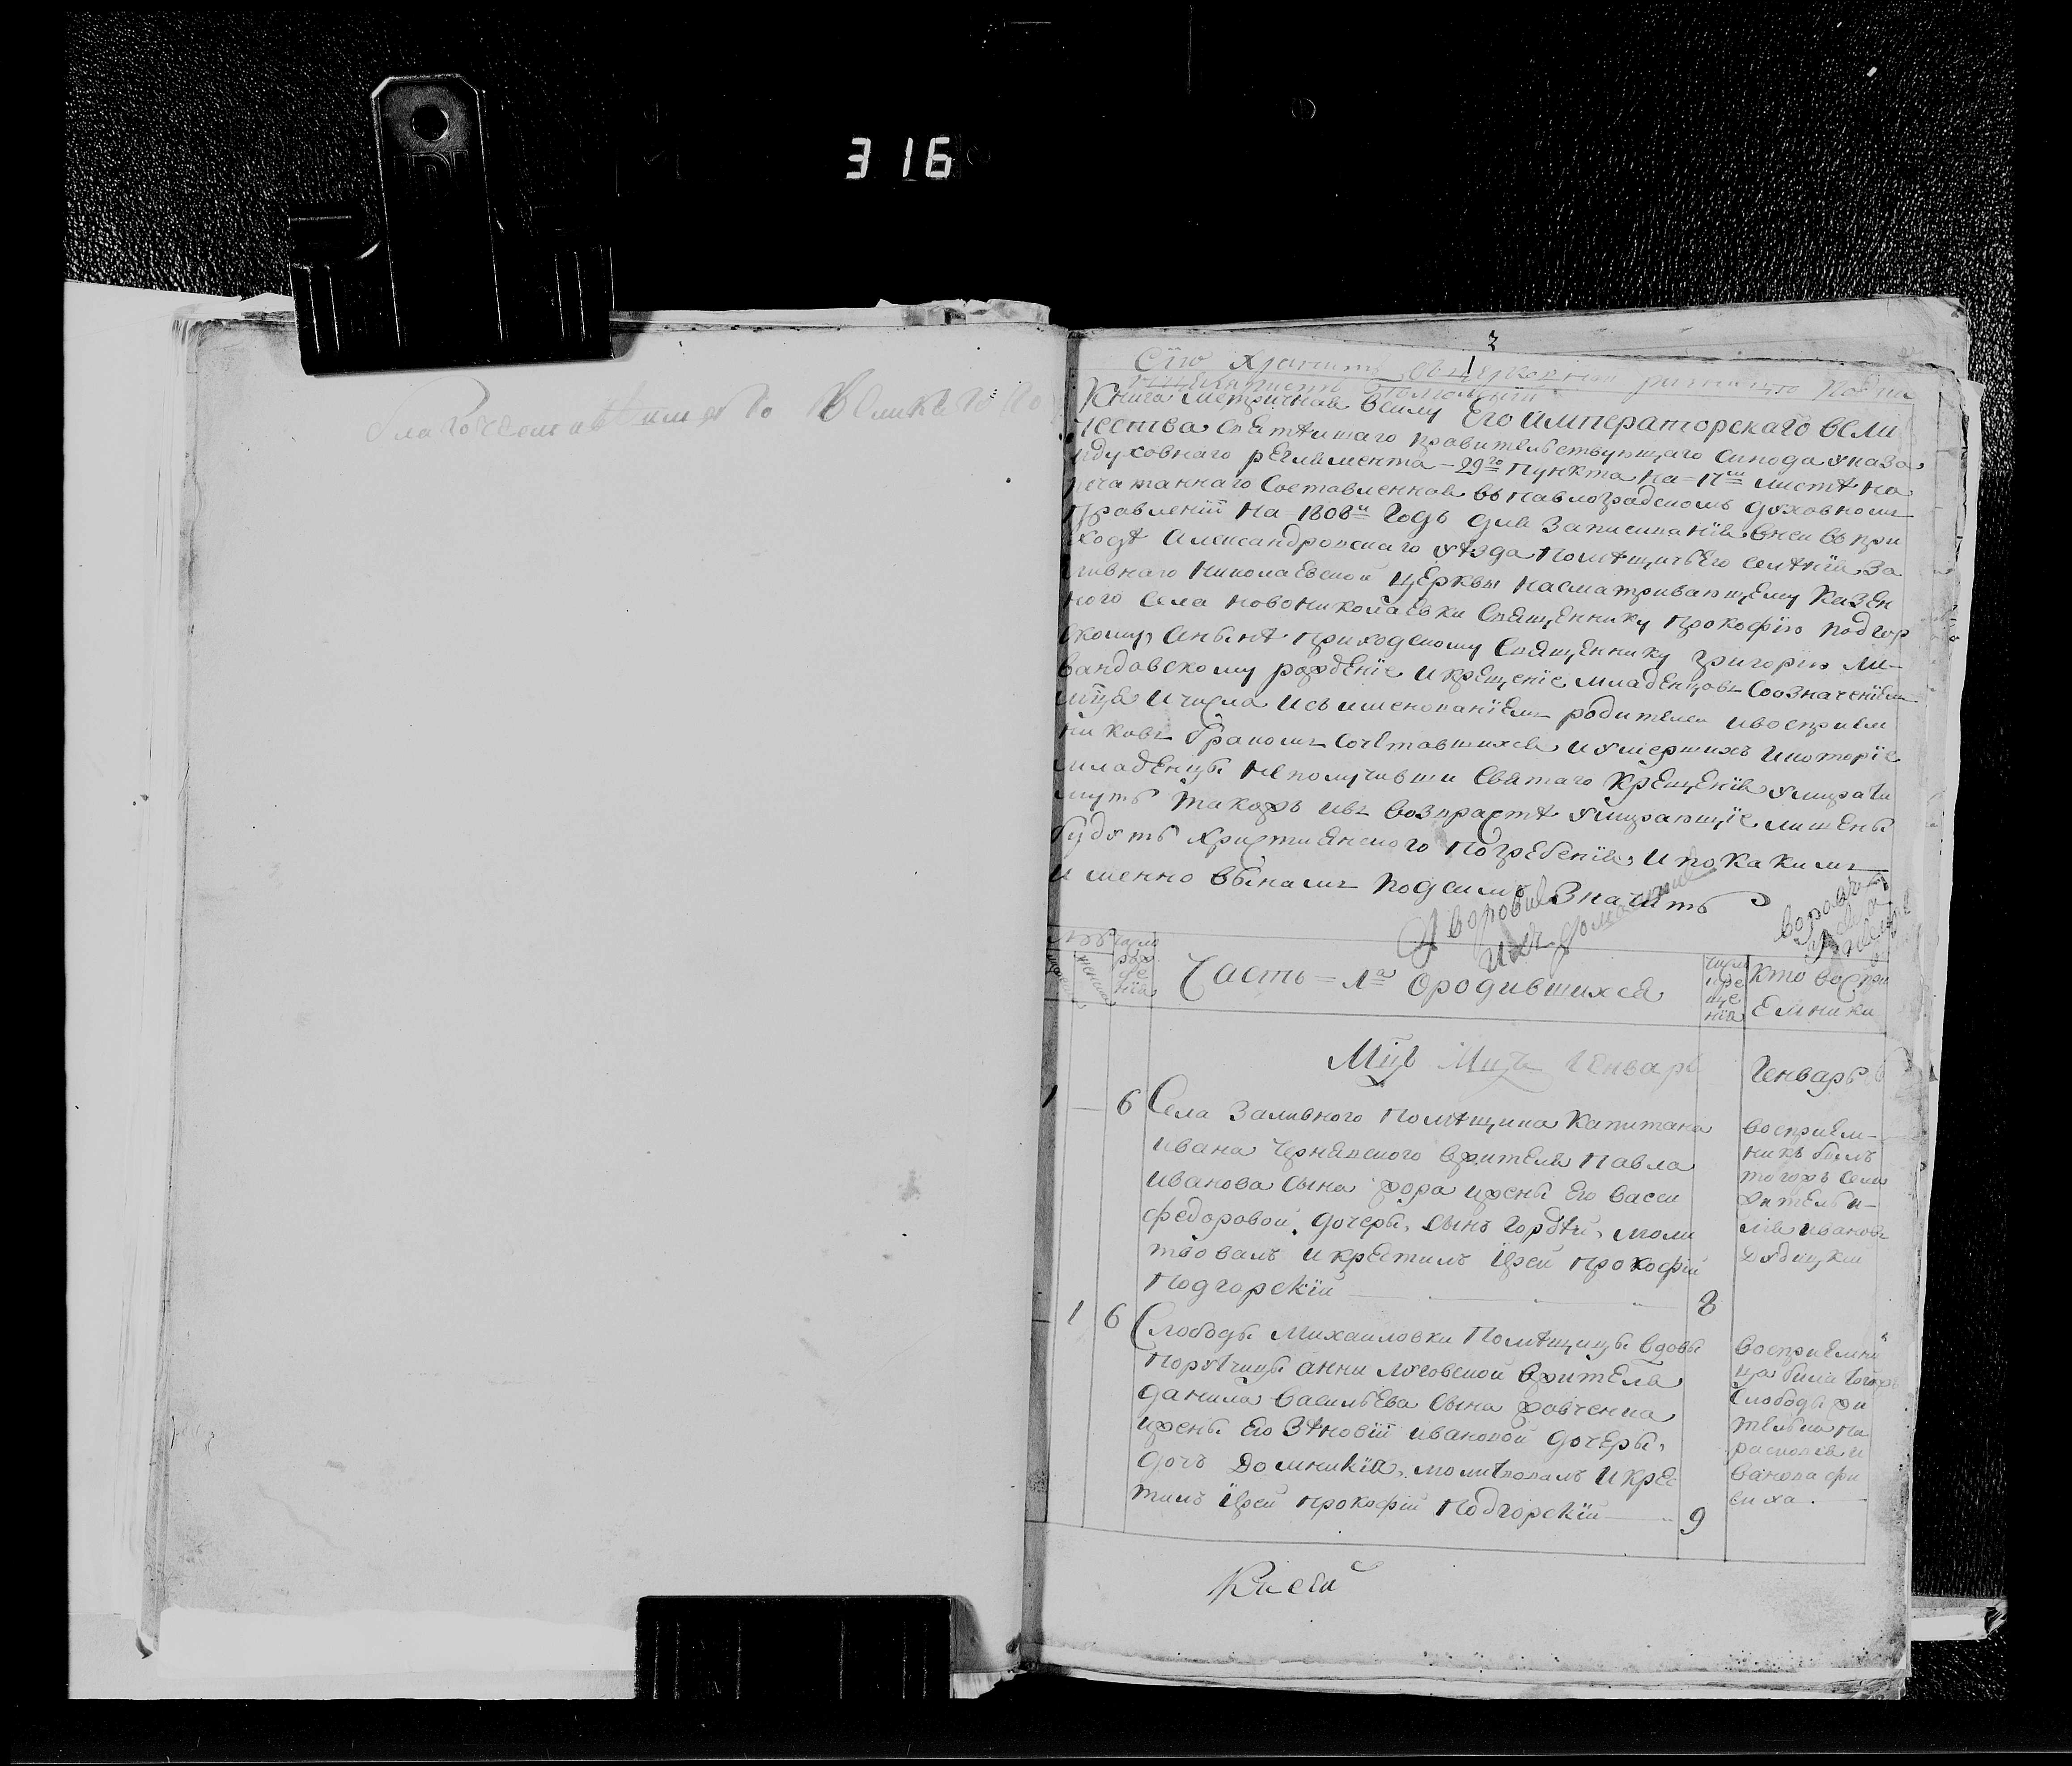 316
2
благочестивишаго Великаго
Сію хранить
Книга метричная всилу Его императорскаго вели
чества святѣишаго правительствующаго синода указа,
идуховнаго регламента - 29го пункта на = 17м листѣ на
печатаннаго Составленная въ павлоградскомъ духовномъ
правленіи на 1808и годъ для записиванія внеи въ при
ходѣ Александровскаго уѣзда помѣщичьего селенія За
ливнаго николаевской церкви насматривающему казен
ного села новониколаевки Священнику прокофію подгор
скому, анынѣ приходскому Священнику григорію ли-
вандовскому рожденіе икрещеніе младенцовъ Сообзначеніемъ
мца и числа исъ именованіемъ родителеи ивоспріем
никовъ бракомъ Сочетавшихся иумершихъ икоторіе
младенцы неполучивши святаго крещенія умирати
муть такожъ ивъ возврастѣ умирающіе лишены
будутъ християнского погребенія, и по какимъ
именно винамъ подсимъ значить
число
рож
де
нія
Часть = 1а Ородившихся
число
кре
ще
нія
Кто воспри
емники
Мцъ Мцъ Генварь
Генварь
1 — 6 Села Заливного помѣщика Капитана
ивана Чернявского жителя Павла
иванова Сына жора ижены его васси
федоровой дочери, сынъ гордѣи, моли
твовалъ и крестилъ іерей прокофій
Подгорскій — 8
воспріем-
никъ былъ
тогожъ села
житель и-
лія ивановъ
1 6 Слободы Михаиловки Помѣщицы вдовы
Порутчицы анни луговской жителя
данила василъева сына
ижены его Зѣновіи ивановой дочери,
дочъ Домникія, молитвовалъ и крес
тилъ іерей прокофій Подгорскій — 9
воспріемни
ца била тогожъ
Слободы жи
телька па
расковія и
ванова